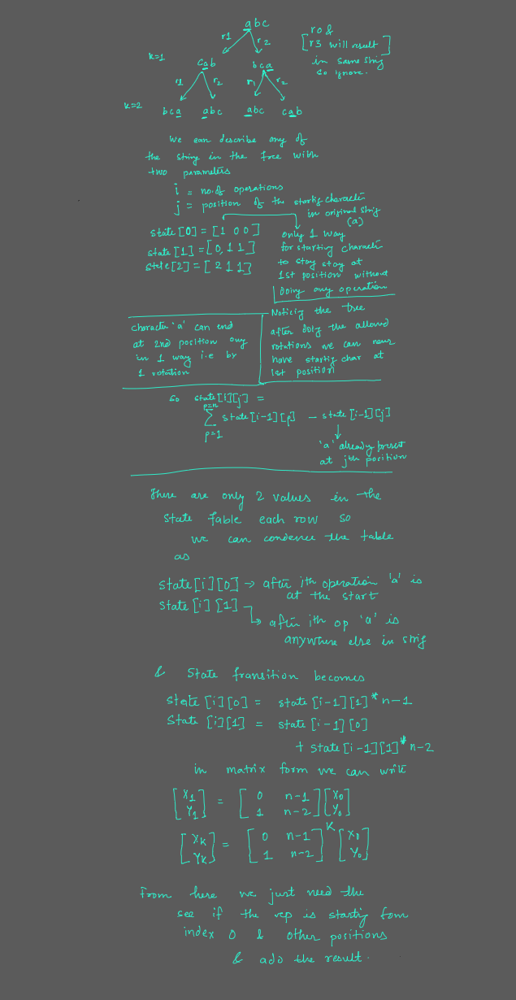 abc
r1 r2
[r0 &
r3 will result]
in same string
so ignore.
k=1
cab bca
r1 r2 r1 r2
k=2
bca abc abc cab
We can describe any of
the string in the tree with
two parameters
i = no. of operations
j = position of the starting character
in original string
(a)
state[0] = [1 0 0]
state[1] = [0, 1 1]
state[2] = [2 1 1]
only 1 way
for starting character
to stay stay at
1st position without
doing any operation
character 'a' can end
at 2nd position only
in 1 way i.e by
1 rotation
Noticing the tree
after doing the allowed
rotations we can never
have starting char at
1st position
so state[i][j] =
p=n
∑ state[i-1][p] - state[i-1][j]
p=1
'a' already present
at jth position
There are only 2 values in the
state table each row so
we can condence the table
as
state[i][0] → after ith operation 'a' is
at the start
state[i][1]
→ after ith op 'a' is
anywhere else in string
& State transition becomes
state[i][0] = state[i-1][1] * n-1
State[i][1] = state[i-1][0]
+ state[i-1][1] * n-2
in matrix form we can write
[X1 Y1] = [0 n-1 1 n-2] [X0 Y0]
[XK YK] = [0 n-1 1 n-2]^K [X0 Y0]
From here we just need the
see if the rep is starting from
index 0 & other positions
& add the result.